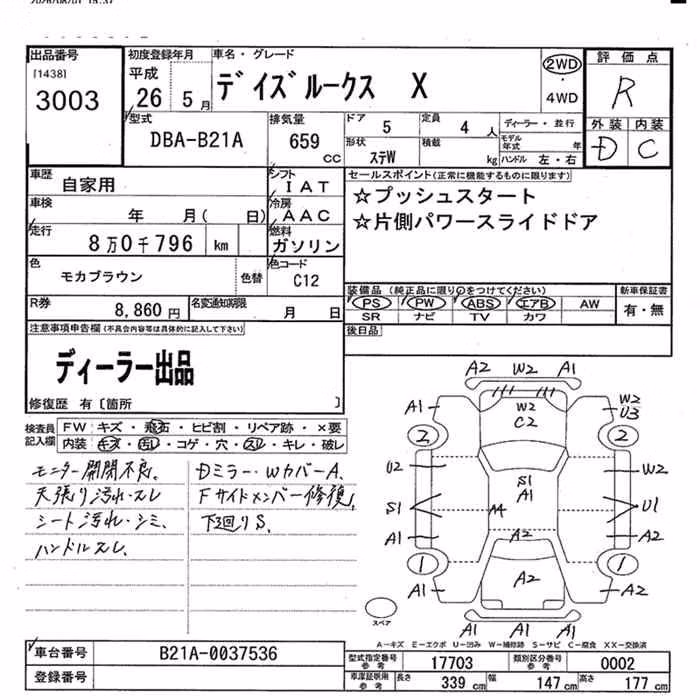 出品番号
[1438]
3003
初度登録年月
平成
26 5月
車名・グレード
デイズルークス X
2WD
・
4WD
評価点
R
外装 内装
D C
型式
DBA-B21A
排気量
659
cc
ドア 5
定員 4人
ディーラー・並行
形状 ステW
積載 kg
モデル年式 年
ハンドル 左・右
車歴
自家用
シフト
IAT
セールスポイント(正常に機能するものに限ります)
☆プッシュスタート
☆片側パワースライドドア
車検
年 月( 日)
冷房
AAC
走行
8万0千796 km
燃料
ガソリン
色
モカブラウン
色替
色コード
C12
装備品(純正品に限り○をつけてください)
新車保証書
PS PW ABS エアB AW
有・無
SR ナビ TV カワ
R券
8,860円
名変通知期限
月 日
後日品
注意事項申告欄(不具合内容等は具体的に記入して下さい)
ディーラー出品
修復歴 有〔箇所 〕
検査員
記入欄
FW キズ・飛石・ヒビ割・リペア跡・×要
内装 キズ・汚れ・コゲ・穴・スレ・キレ・破レ
モニター開閉不良。
天張り汚れ・スレ
シート汚れ・シミ、
ハンドルスレ。
Dミラー・WカバーA、
Fサイドメンバー修復。
下廻りS。
A2 W2 A1
A1
W2
C2
W2
U3
2 2
U2
W2
S1
A1
S1
U1
A1
A2
A2
1 1
A1
A2
A2
A1 A1
スペア
A-キズ E-エクボ U-凹み W-補修跡 S-サビ C-腐食 XX-交換済
車台番号
B21A-0037536
登録番号
型式指定番号
参考
17703
類別区分番号
参考
0002
車庫証明用
参考
長さ 339cm
幅 147cm
高さ 177cm